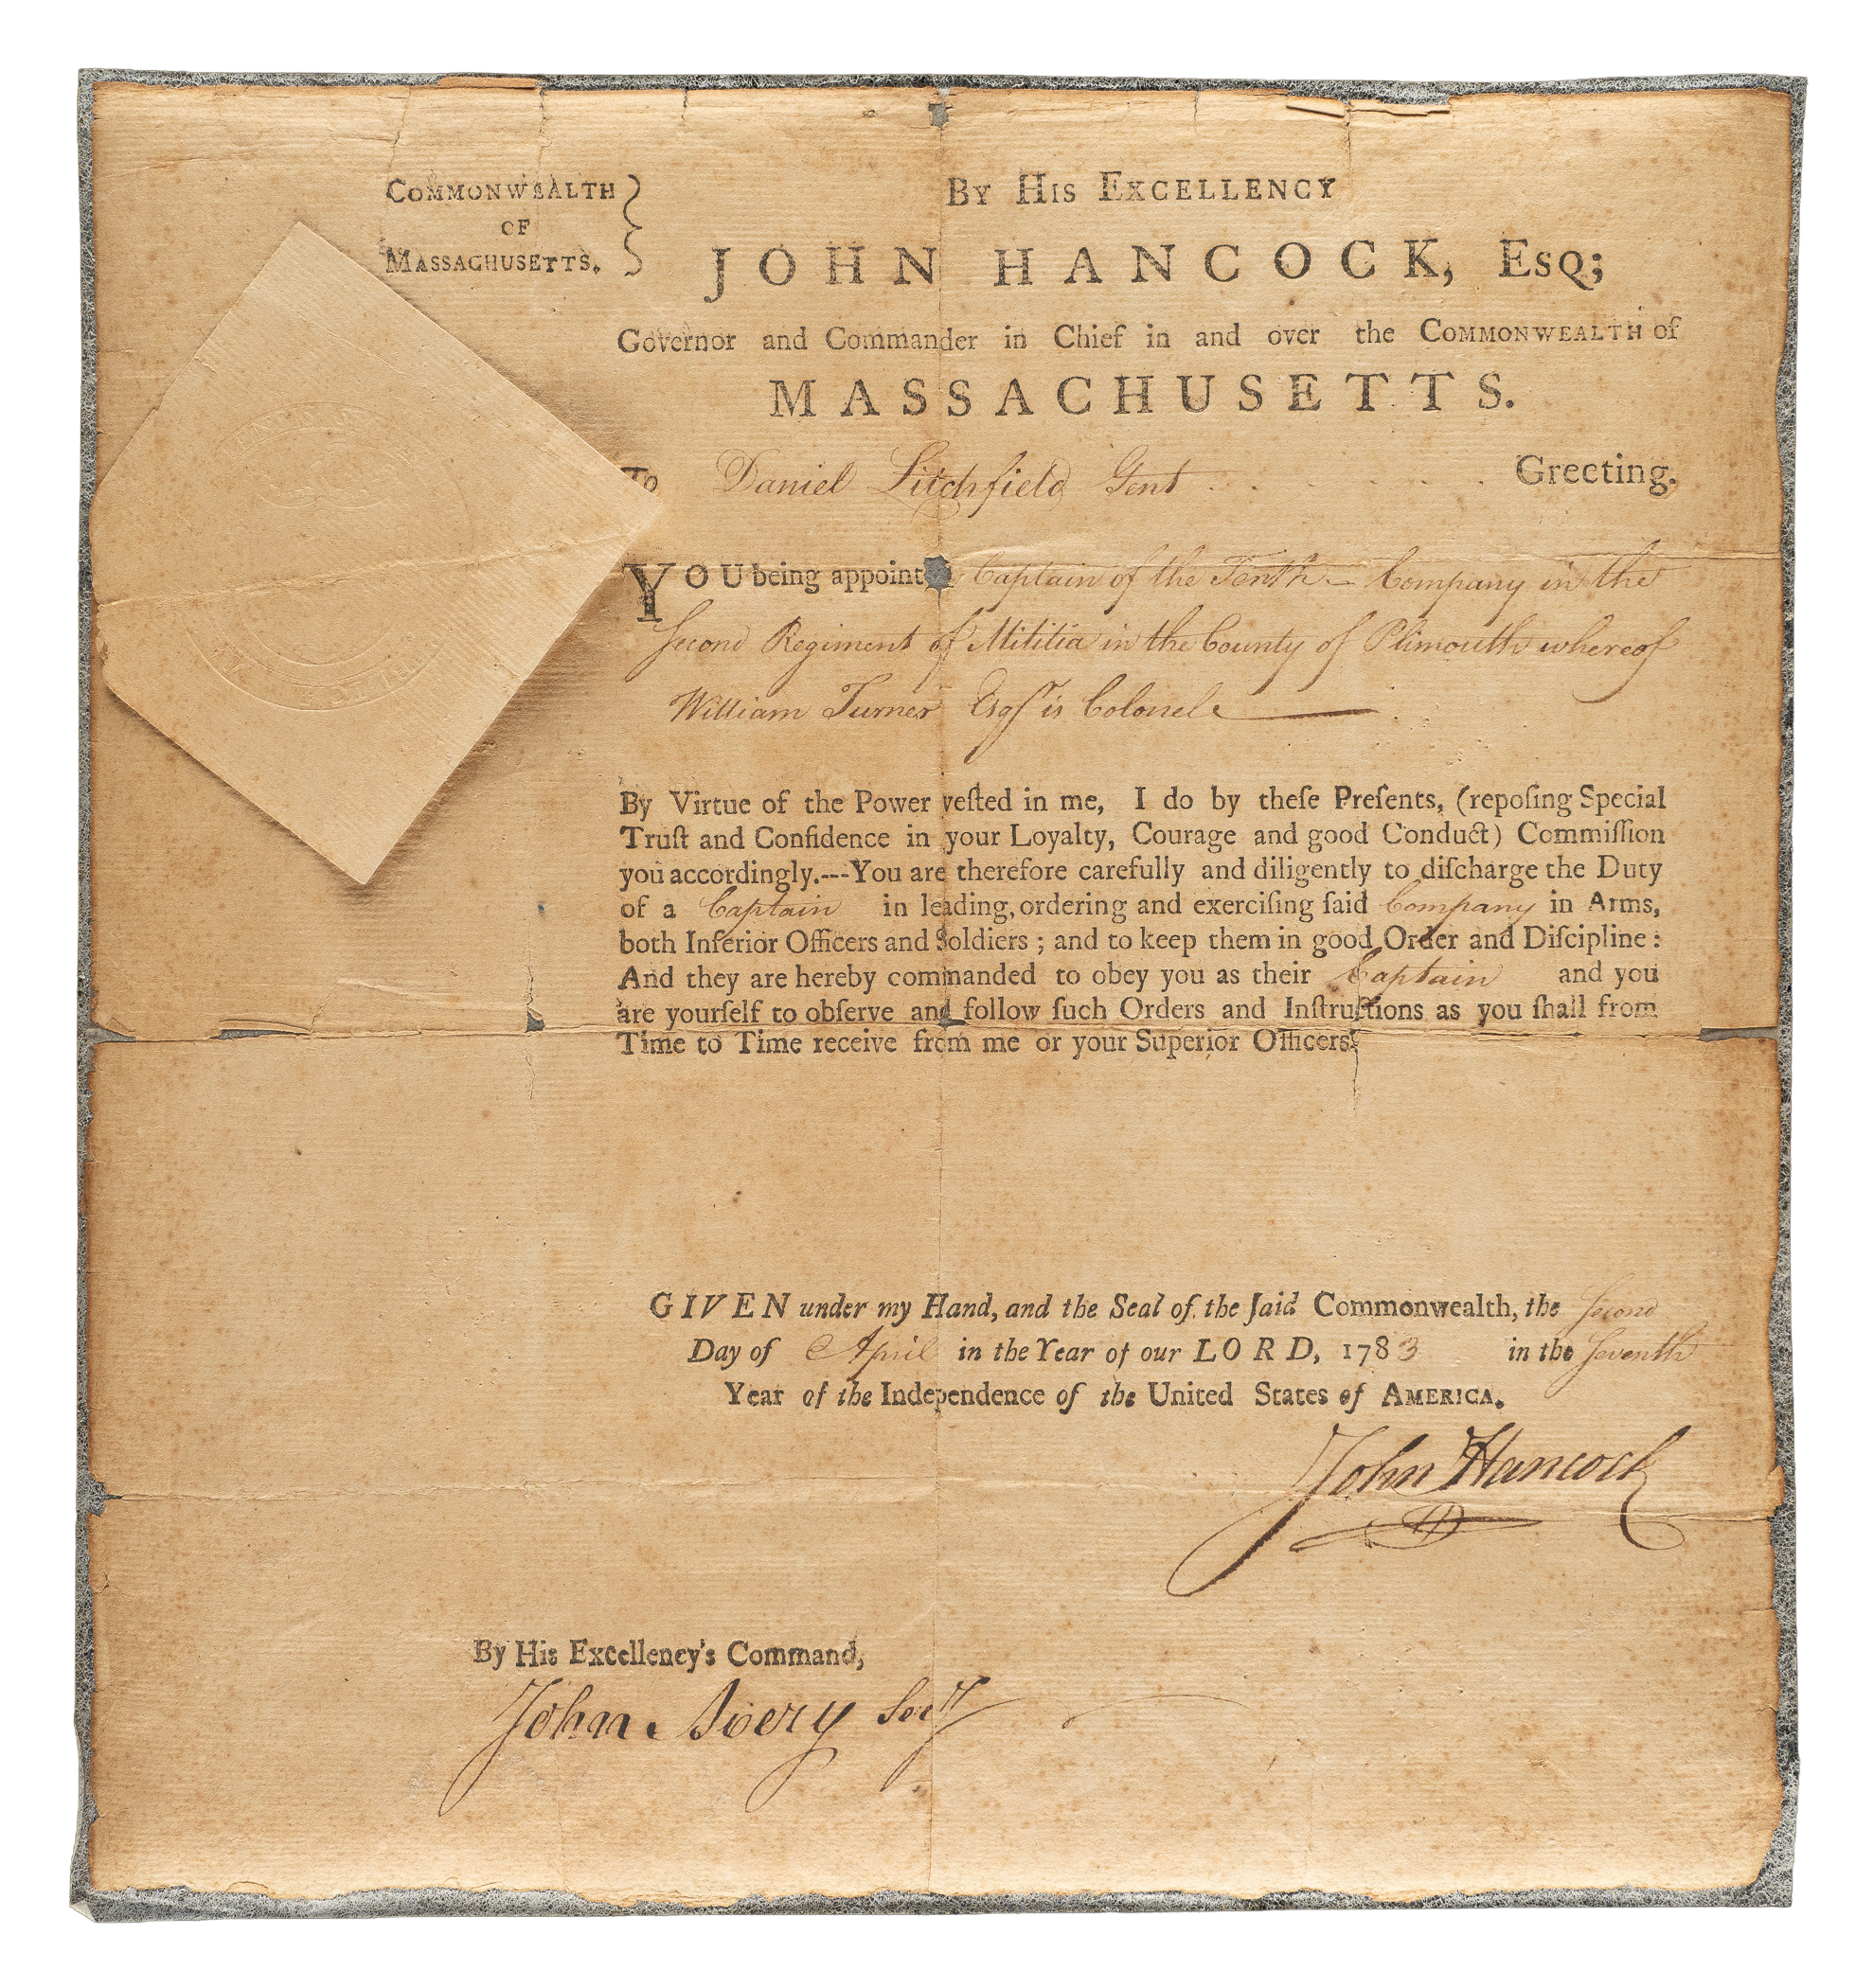 COMMONWEALTH
OF
MASSACHUSETTS.
BY HIS EXCELLENCY
JOHN HANCOCK, ESQ;
Governor and Commander in Chief in and over the COMMONWEALTH of
MASSACHUSETTS.
To Daniel Litchfield Gent . . . . . . Greeting.
YOU being appoint Captain of the Tenth — Company in the
Second Regiment of Militia in the County of Plimouth whereof
William Turner Esqr is Colonel —
By Virtue of the Power veſted in me, I do by theſe Preſents, (repoſing Special
Truſt and Confidence in your Loyalty, Courage and good Conduct) Commiſſion
you accordingly.---You are therefore carefully and diligently to diſcharge the Duty
of a Captain in leading, ordering and exerciſing ſaid Company in Arms,
both Inferior Officers and Soldiers ; and to keep them in good Order and Diſcipline :
And they are hereby commanded to obey you as their Captain and you
are yourſelf to obſerve and follow ſuch Orders and Inſtructions as you ſhall from
Time to Time receive from me or your Superior Officers.
GIVEN under my Hand, and the Seal of the ſaid Commonwealth, the Second
Day of April in the Year of our LORD, 1783 in the Seventh
Year of the Independence of the United States of AMERICA.
John Hancock
By His Excellency's Command,
John Avery Secy